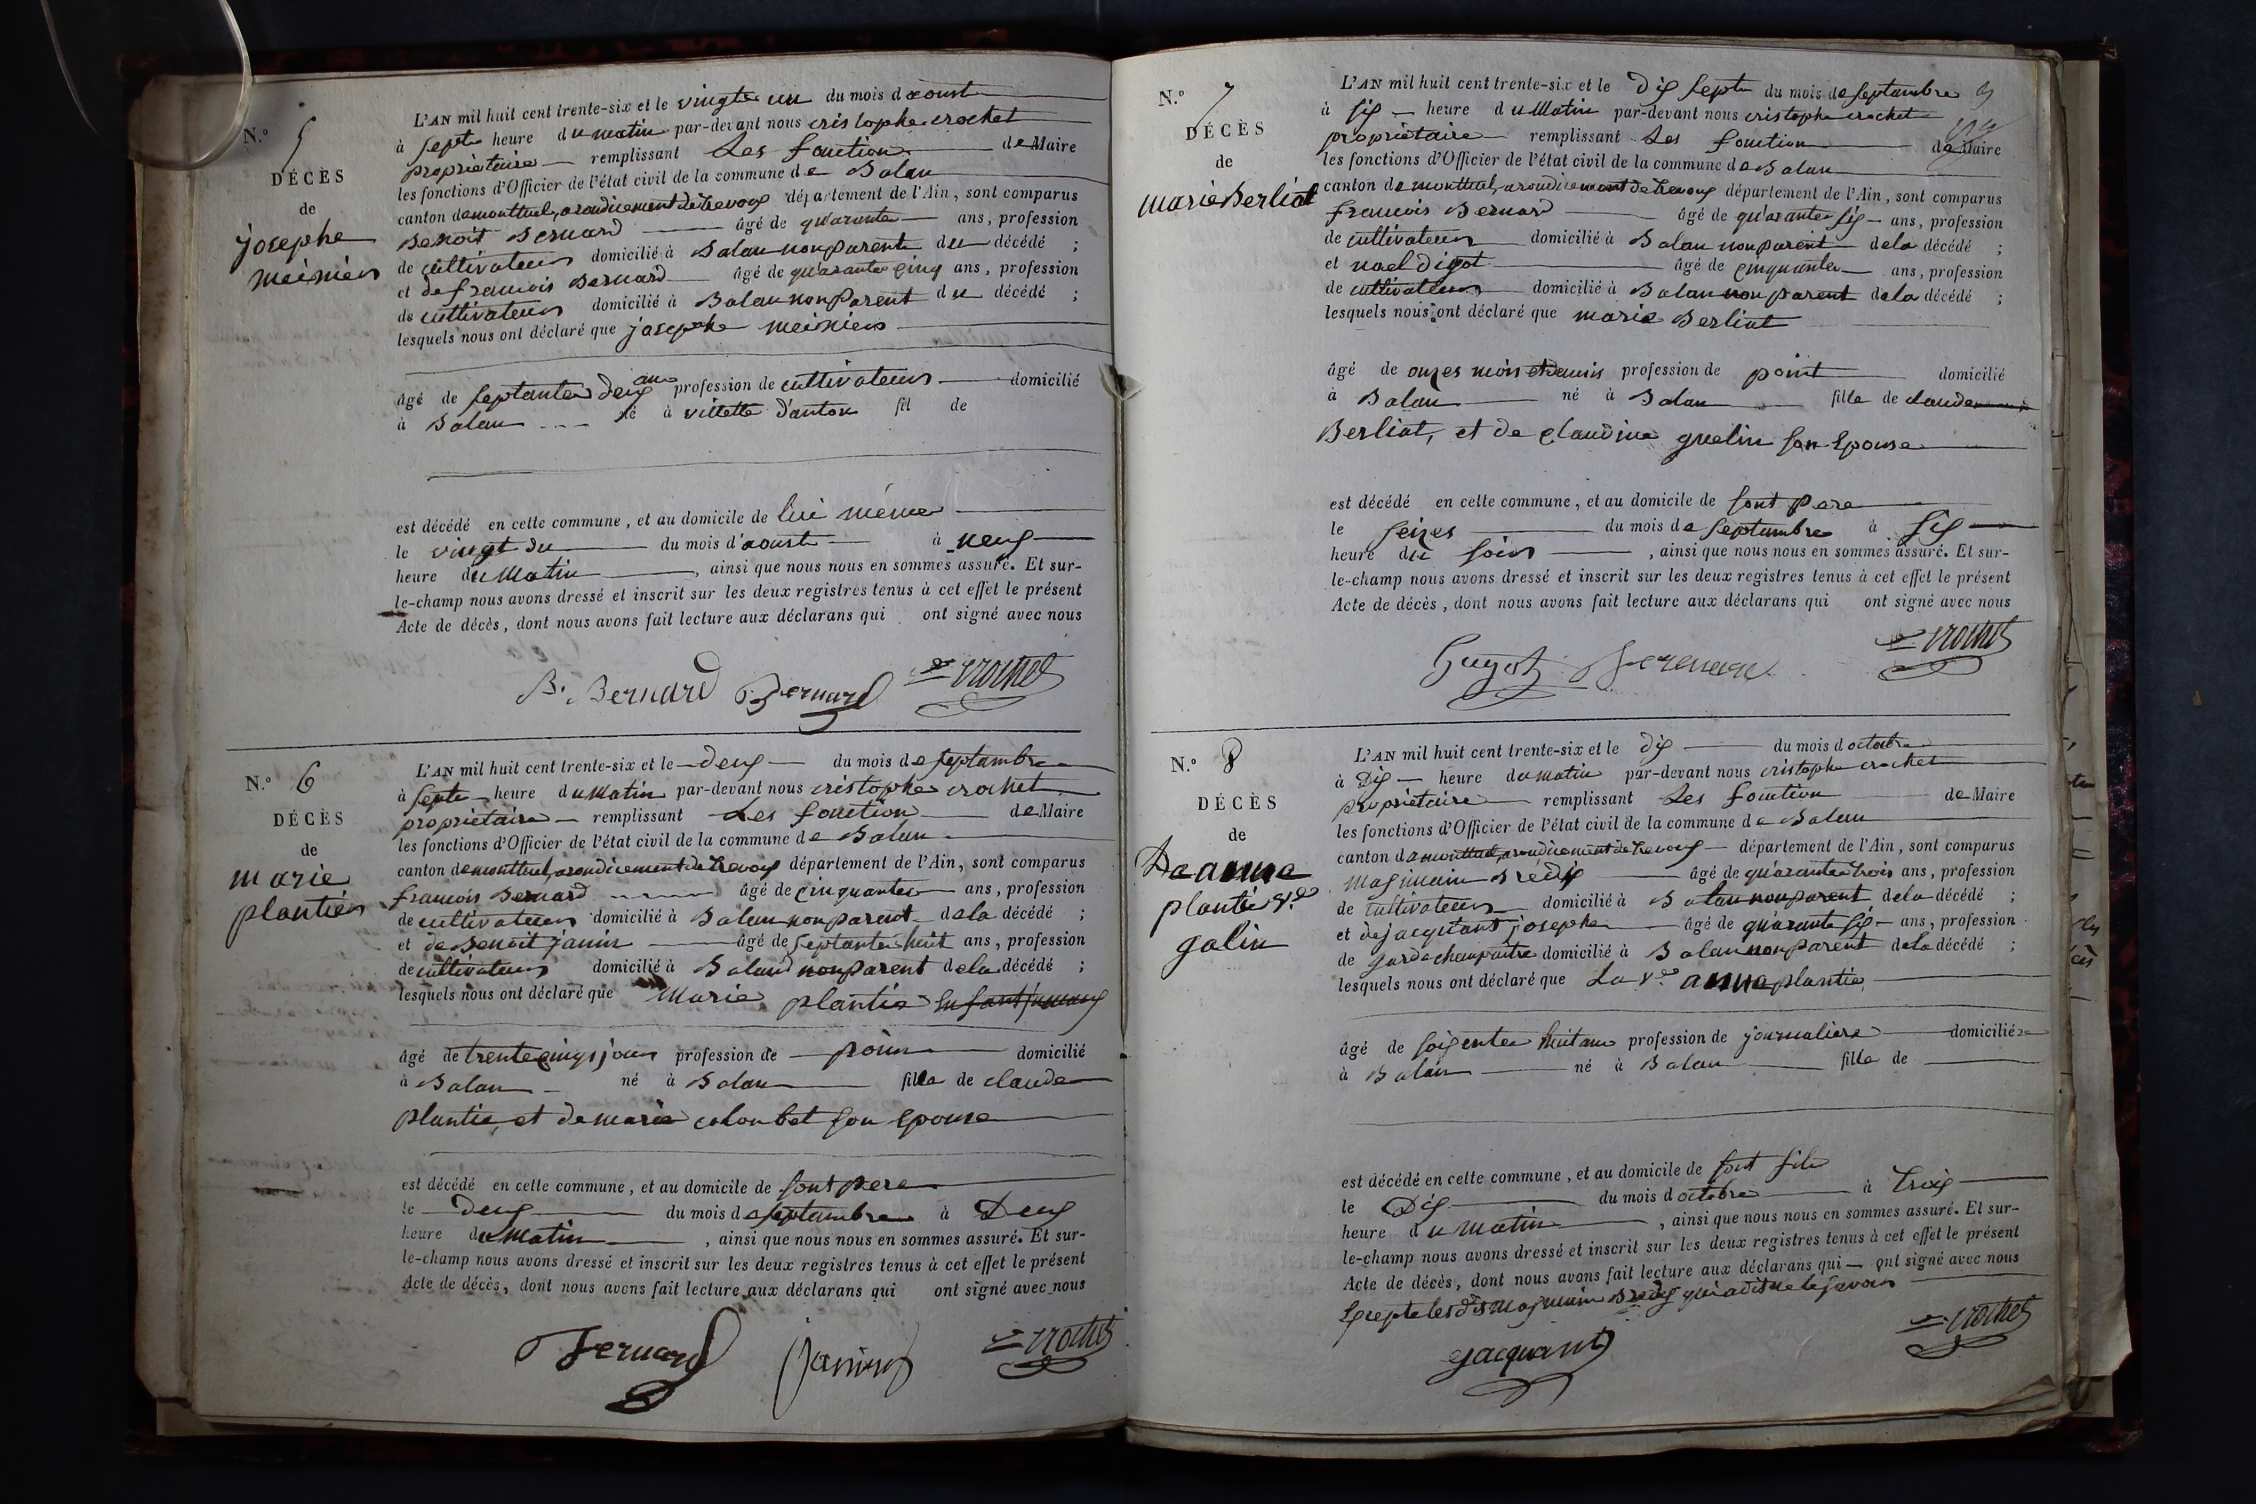 N.º 5
DÉCÈS
de
josephe
meiniers
L'AN mil huit cent trente-six et le vingte un du mois d'aoust
à septe heure du matin par-devant nous cristophe crochet
propriétaire remplissant Les fonction de Maire
les fonctions d'Officier de l'état civil de la commune de Balan
canton de montluel, arondicement de trevoux département de l'Ain, sont comparus
Benoit Bernard âgé de quarante ans, profession
de cultivateur domicilié à Balan non parent du décédé ;
et de francois Bernard âgé de quarante cinq ans, profession
de cultivateur domicilié à Balan non Parent du décédé ;
lesquels nous ont déclaré que josephe meiniers
âgé de septante deux ans profession de cultivateur domicilié
à Balan né à villette d'anton fil de
est décédé en cette commune, et au domicile de lui même
le vingt du du mois d'aoust à neuf
heure du Matin , ainsi que nous nous en sommes assuré. Et sur-
le-champ nous avons dressé et inscrit sur les deux registres tenus à cet effet le présent
Acte de décès, dont nous avons fait lecture aux déclarans qui ont signé avec nous
B. Bernard Bernard crochet
N.º 6
DÉCÈS
de
marie
plantier
L'AN mil huit cent trente-six et le deux du mois de septambre
à septe heure du Matin par-devant nous cristophe crochet
propriétaire remplissant Les fonction de Maire
les fonctions d'Officier de l'état civil de la commune de Balan
canton de montluel, arondicement de trevoux département de l'Ain, sont comparus
francois Bernard âgé de cinquante ans, profession
de cultivateur domicilié à Balan non parent de la décédé ;
et de Benoit janin âgé de septante huit ans, profession
de cultivateur domicilié à Baland non parent de la décédé ;
lesquels nous ont déclaré que Marie plantie
âgé de trente cinqs jour profession de poin domicilié
à Balan né à Balan fille de claude
plantie, et de marie colonbet son epouse
est décédé en cette commune, et au domicile de sont pere
le deux du mois de septambre à Deux
heure du Matin , ainsi que nous nous en sommes assuré. Et sur-
le-champ nous avons dressé et inscrit sur les deux registres tenus à cet effet le présent
Acte de décès, dont nous avons fait lecture aux déclarans qui ont signé avec nous
Bernard janin crochet
N.º 7
DÉCÈS
de
marie Berliat
L'AN mil huit cent trente-six et le dix septe du mois de septambre
à six heure du Matin par-devant nous cristophe crochet
propriétaire remplissant Les fonction de Maire
les fonctions d'Officier de l'état civil de la commune de Balan
canton de montluel, arondicement de trevoux département de l'Ain, sont comparus
francois Bernard âgé de quarante six ans, profession
de cultivateur domicilié à Balan non parent de la décédé ;
et noel âgé de cinquante ans, profession
de cultivateur domicilié à Balan non parent de la décédé ;
lesquels nous ont déclaré que marie Berliat
âgé de onzes mois et demis profession de point domicilié
à Balan né à Balan fille de claude
Berliat, et de claudine guelin son Epouse
est décédé en cette commune, et au domicile de sont Pere
le seizes du mois de septambre à six
heure du soir , ainsi que nous nous en sommes assuré. Et sur-
le-champ nous avons dressé et inscrit sur les deux registres tenus à cet effet le présent
Acte de décès, dont nous avons fait lecture aux déclarans qui ont signé avec nous
Bernard crochet
N.º 8
DÉCÈS
de
De anne
plantié v.e
galin
L'AN mil huit cent trente-six et le dix du mois d'octobre
à Dix heure du matin par-devant nous cristophe crochet
propriétaire remplissant Les fonction de Maire
les fonctions d'Officier de l'état civil de la commune de Balan
canton de montluel, arondicement de trevoux département de l'Ain, sont comparus
maximain Bredy âgé de quarante trois ans, profession
de cultivateur domicilié à Balan non parent de la décédé ;
et de jacquant josephe âgé de quarante six ans, profession
de garde chanpaitre domicilié à Balan non Parent de la décédé ;
lesquels nous ont déclaré que La v.e anne plantie
âgé de soixente huit ans profession de journaliere domicilié
à Balan né à Balan fille de
est décédé en cette commune, et au domicile de sont fils
le Dix du mois d'octobre à trois
heure du matin , ainsi que nous nous en sommes assuré. Et sur-
le-champ nous avons dressé et inscrit sur les deux registres tenus à cet effet le présent
Acte de décès, dont nous avons fait lecture aux déclarans qui ont signé avec nous
Exepte les dis maximain Bredy qui a dit ne le savoir
jacquant crochet